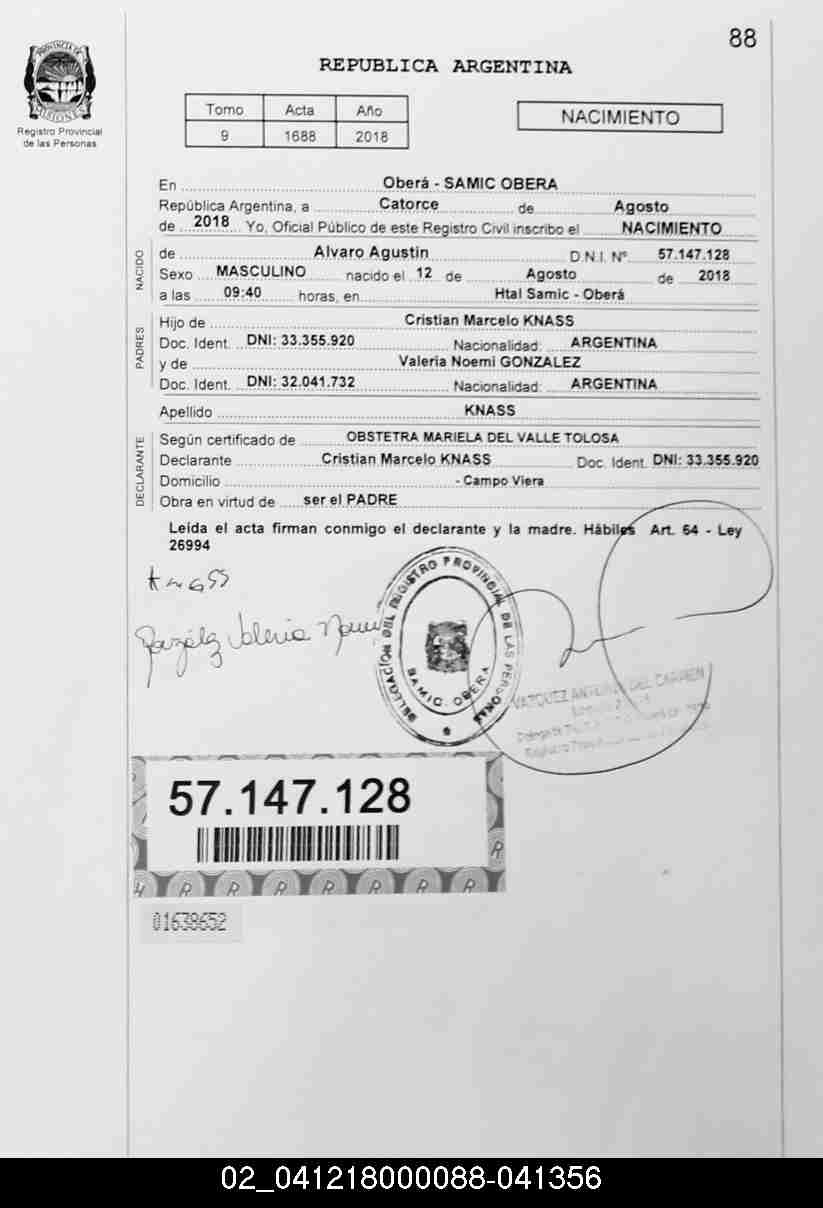 88
PROVINCIA DE
MISIONES
Registro Provincial
de las Personas
REPUBLICA ARGENTINA
Tomo Acta Año
9 1688 2018
NACIMIENTO
En Oberá - SAMIC OBERA
República Argentina, a Catorce de Agosto
de 2018 Yo, Oficial Público de este Registro Civil inscribo el NACIMIENTO
NACIDO
de Alvaro Agustin D.N.I. Nº 57.147.128
Sexo MASCULINO nacido el 12 de Agosto de 2018
a las 09:40 horas, en Htal Samic - Oberá
PADRES
Hijo de Cristian Marcelo KNASS
Doc. Ident. DNI: 33.355.920 Nacionalidad: ARGENTINA
y de Valeria Noemi GONZALEZ
Doc. Ident. DNI: 32.041.732 Nacionalidad: ARGENTINA
Apellido KNASS
DECLARANTE
Según certificado de OBSTETRA MARIELA DEL VALLE TOLOSA
Declarante Cristian Marcelo KNASS Doc. Ident. DNI: 33.355.920
Domicilio - Campo Viera
Obra en virtud de ser el PADRE
Leída el acta firman conmigo el declarante y la madre. Hábiles Art. 64 - Ley
26994
Knass
González Valeria Noemi
DELEGACION DEL REGISTRO PROVINCIAL DE LAS PERSONAS
SAMIC. OBERA
VAZQUEZ ANTONIA DEL CARMEN
57.147.128
R R R R R R R R
01638652
02_041218000088-041356